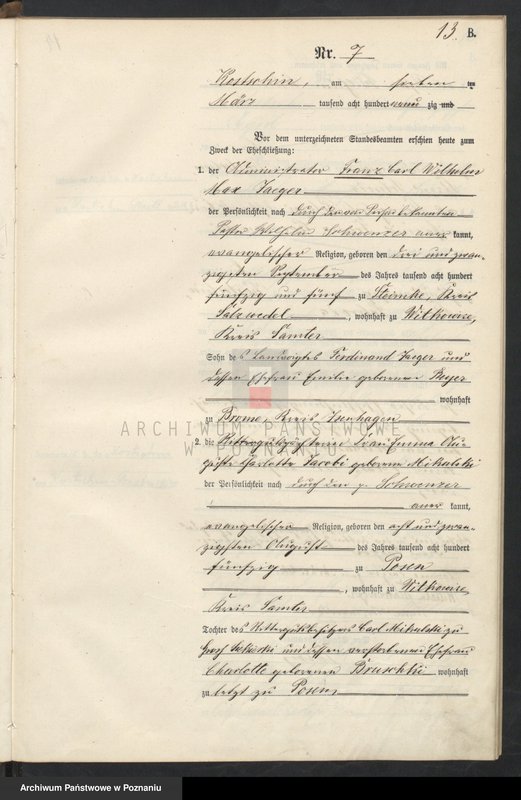 13. B.
Nr. 7
Kostschin, am sieben ten
März tausend acht hundert neun zig und
Vor dem unterzeichneten Standesbeamten erschien heute zum
Zweck der Eheschließung:
1. der Administrator Franz Carl Wilhelm
Max Jaeger
der Persönlichkeit nach durch
Pastor Wilhelm Schwenzer aner kannt,
evangelischer Religion, geboren den drei und zwan-
zigsten September des Jahres tausend acht hundert
fünfzig und fünf zu Steimke, Kreis
Salzwedel, wohnhaft zu Witkowice,
Kreis Samter
Sohn des Landvoigtes Ferdinand Jaeger und
dessen Ehefrau Emilie geborene Meyer
wohnhaft
zu Brome, Kreis Isenhagen
ARCHIWUM PAŃSTWOWE
W POZNANIU
2. die Frau Emma Au-
guste Charlotte Jacobi geborene Mikulski
der Persönlichkeit nach durch den p. Schwenzer
aner kannt,
evangelischer Religion, geboren den acht und zwan-
zigsten August des Jahres tausend acht hundert
fünfzig zu Posen
, wohnhaft zu Witkowice,
Kreis Samter
Tochter des Rittergutsbesitzers Carl Mikulski zu
und dessen verstorbenen Ehefrau
Charlotte geborenen wohnhaft
zu letzt zu Posen,
Archiwum Państwowe w Poznaniu